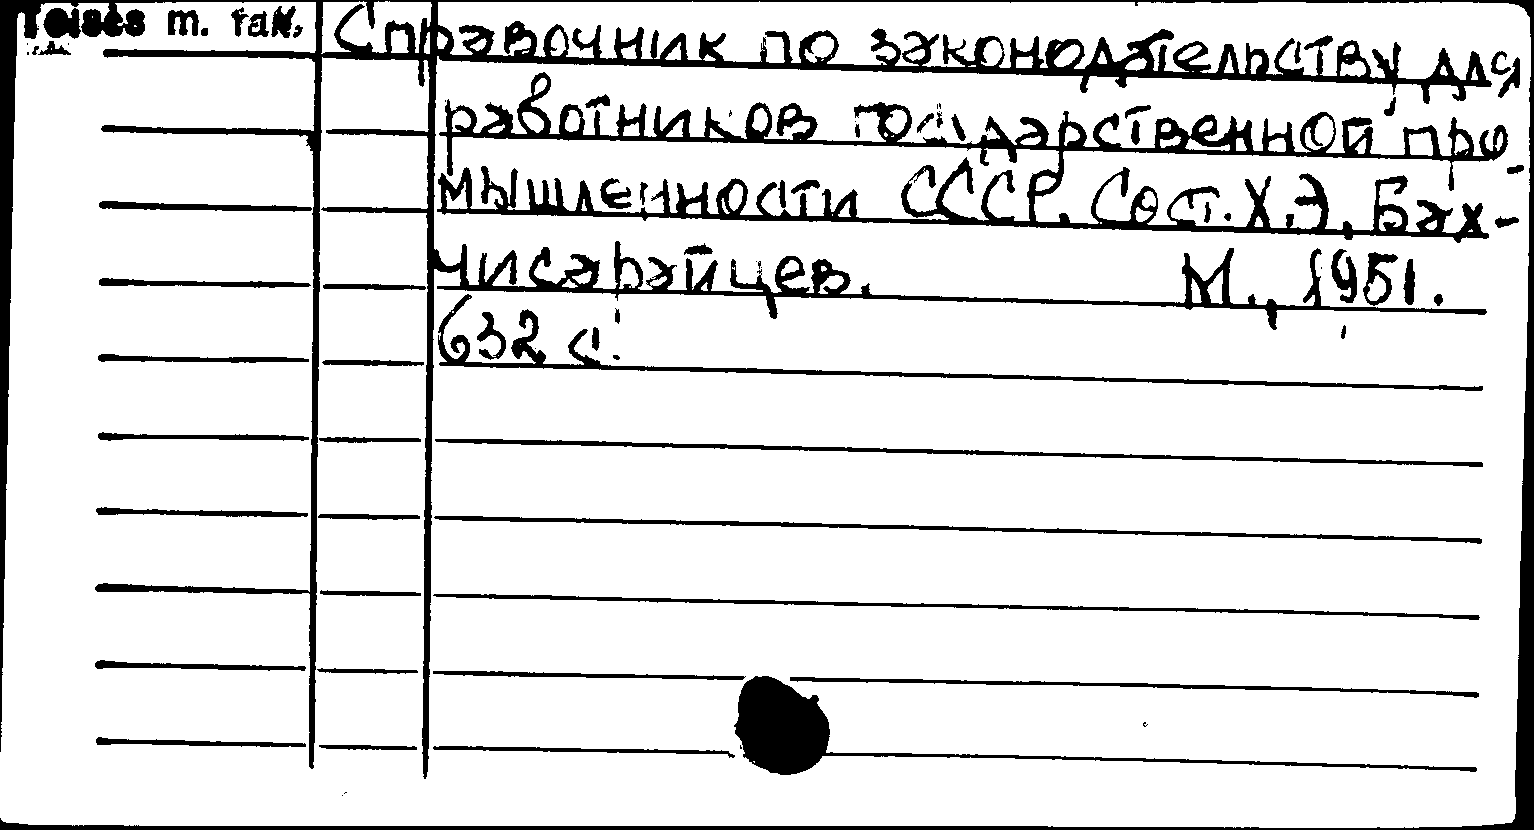 Teisės m. fak.
Справочник по законодательству для
работников государственной про-
мышленности СССР. Сост. Х.Э. Бах-
чисарайцев. М., 1951.
632 с.